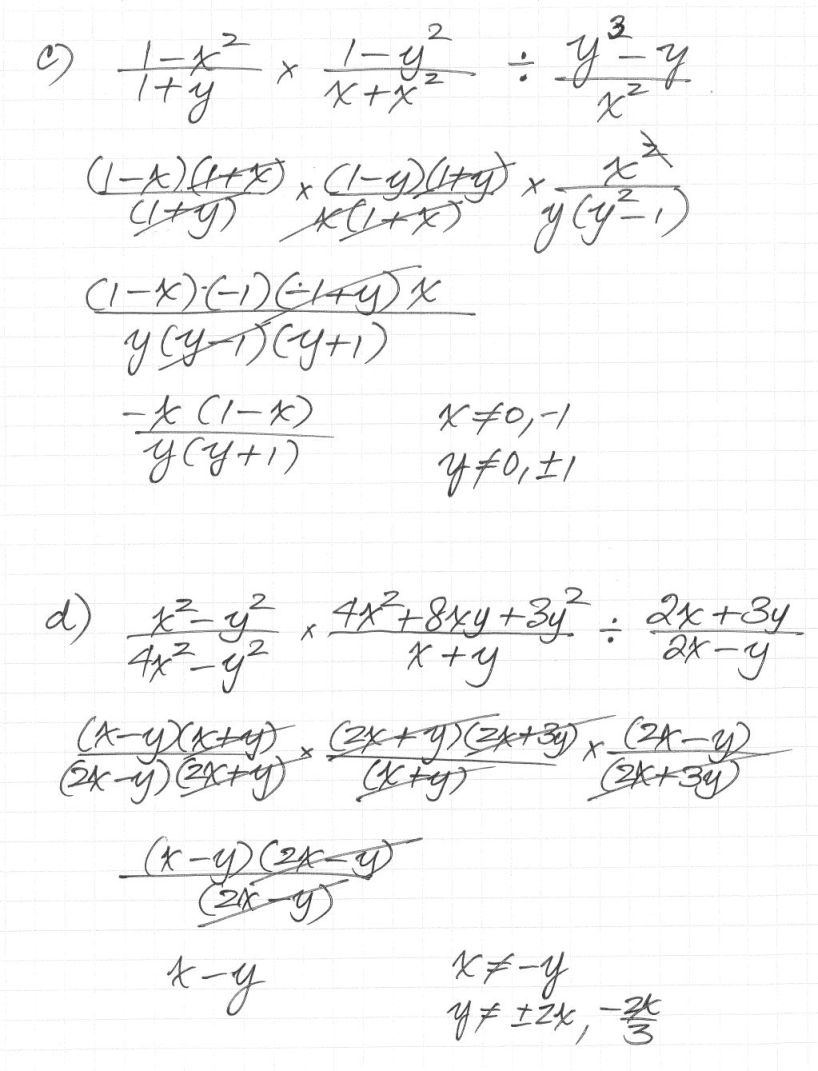 c) (1-x²)/(1+y) × (1-y²)/(x+x²) ÷ (y³-y)/x²
(1-x)(1+x)/(1+y) × (1-y)(1+y)/x(1+x) × x²/y(y²-1)
(1-x)·(-1)(-1+y)x/y(y-1)(y+1)
-x(1-x)/y(y+1) x≠0,-1
y≠0,±1
d) (x²-y²)/(4x²-y²) × (4x²+8xy+3y²)/(x+y) ÷ (2x+3y)/(2x-y)
(x-y)(x+y)/(2x-y)(2x+y) × (2x+y)(2x+3y)/(x+y) × (2x-y)/(2x+3y)
(x-y)(2x-y)/(2x-y)
x-y x≠-y
y≠±2x, -2x/3